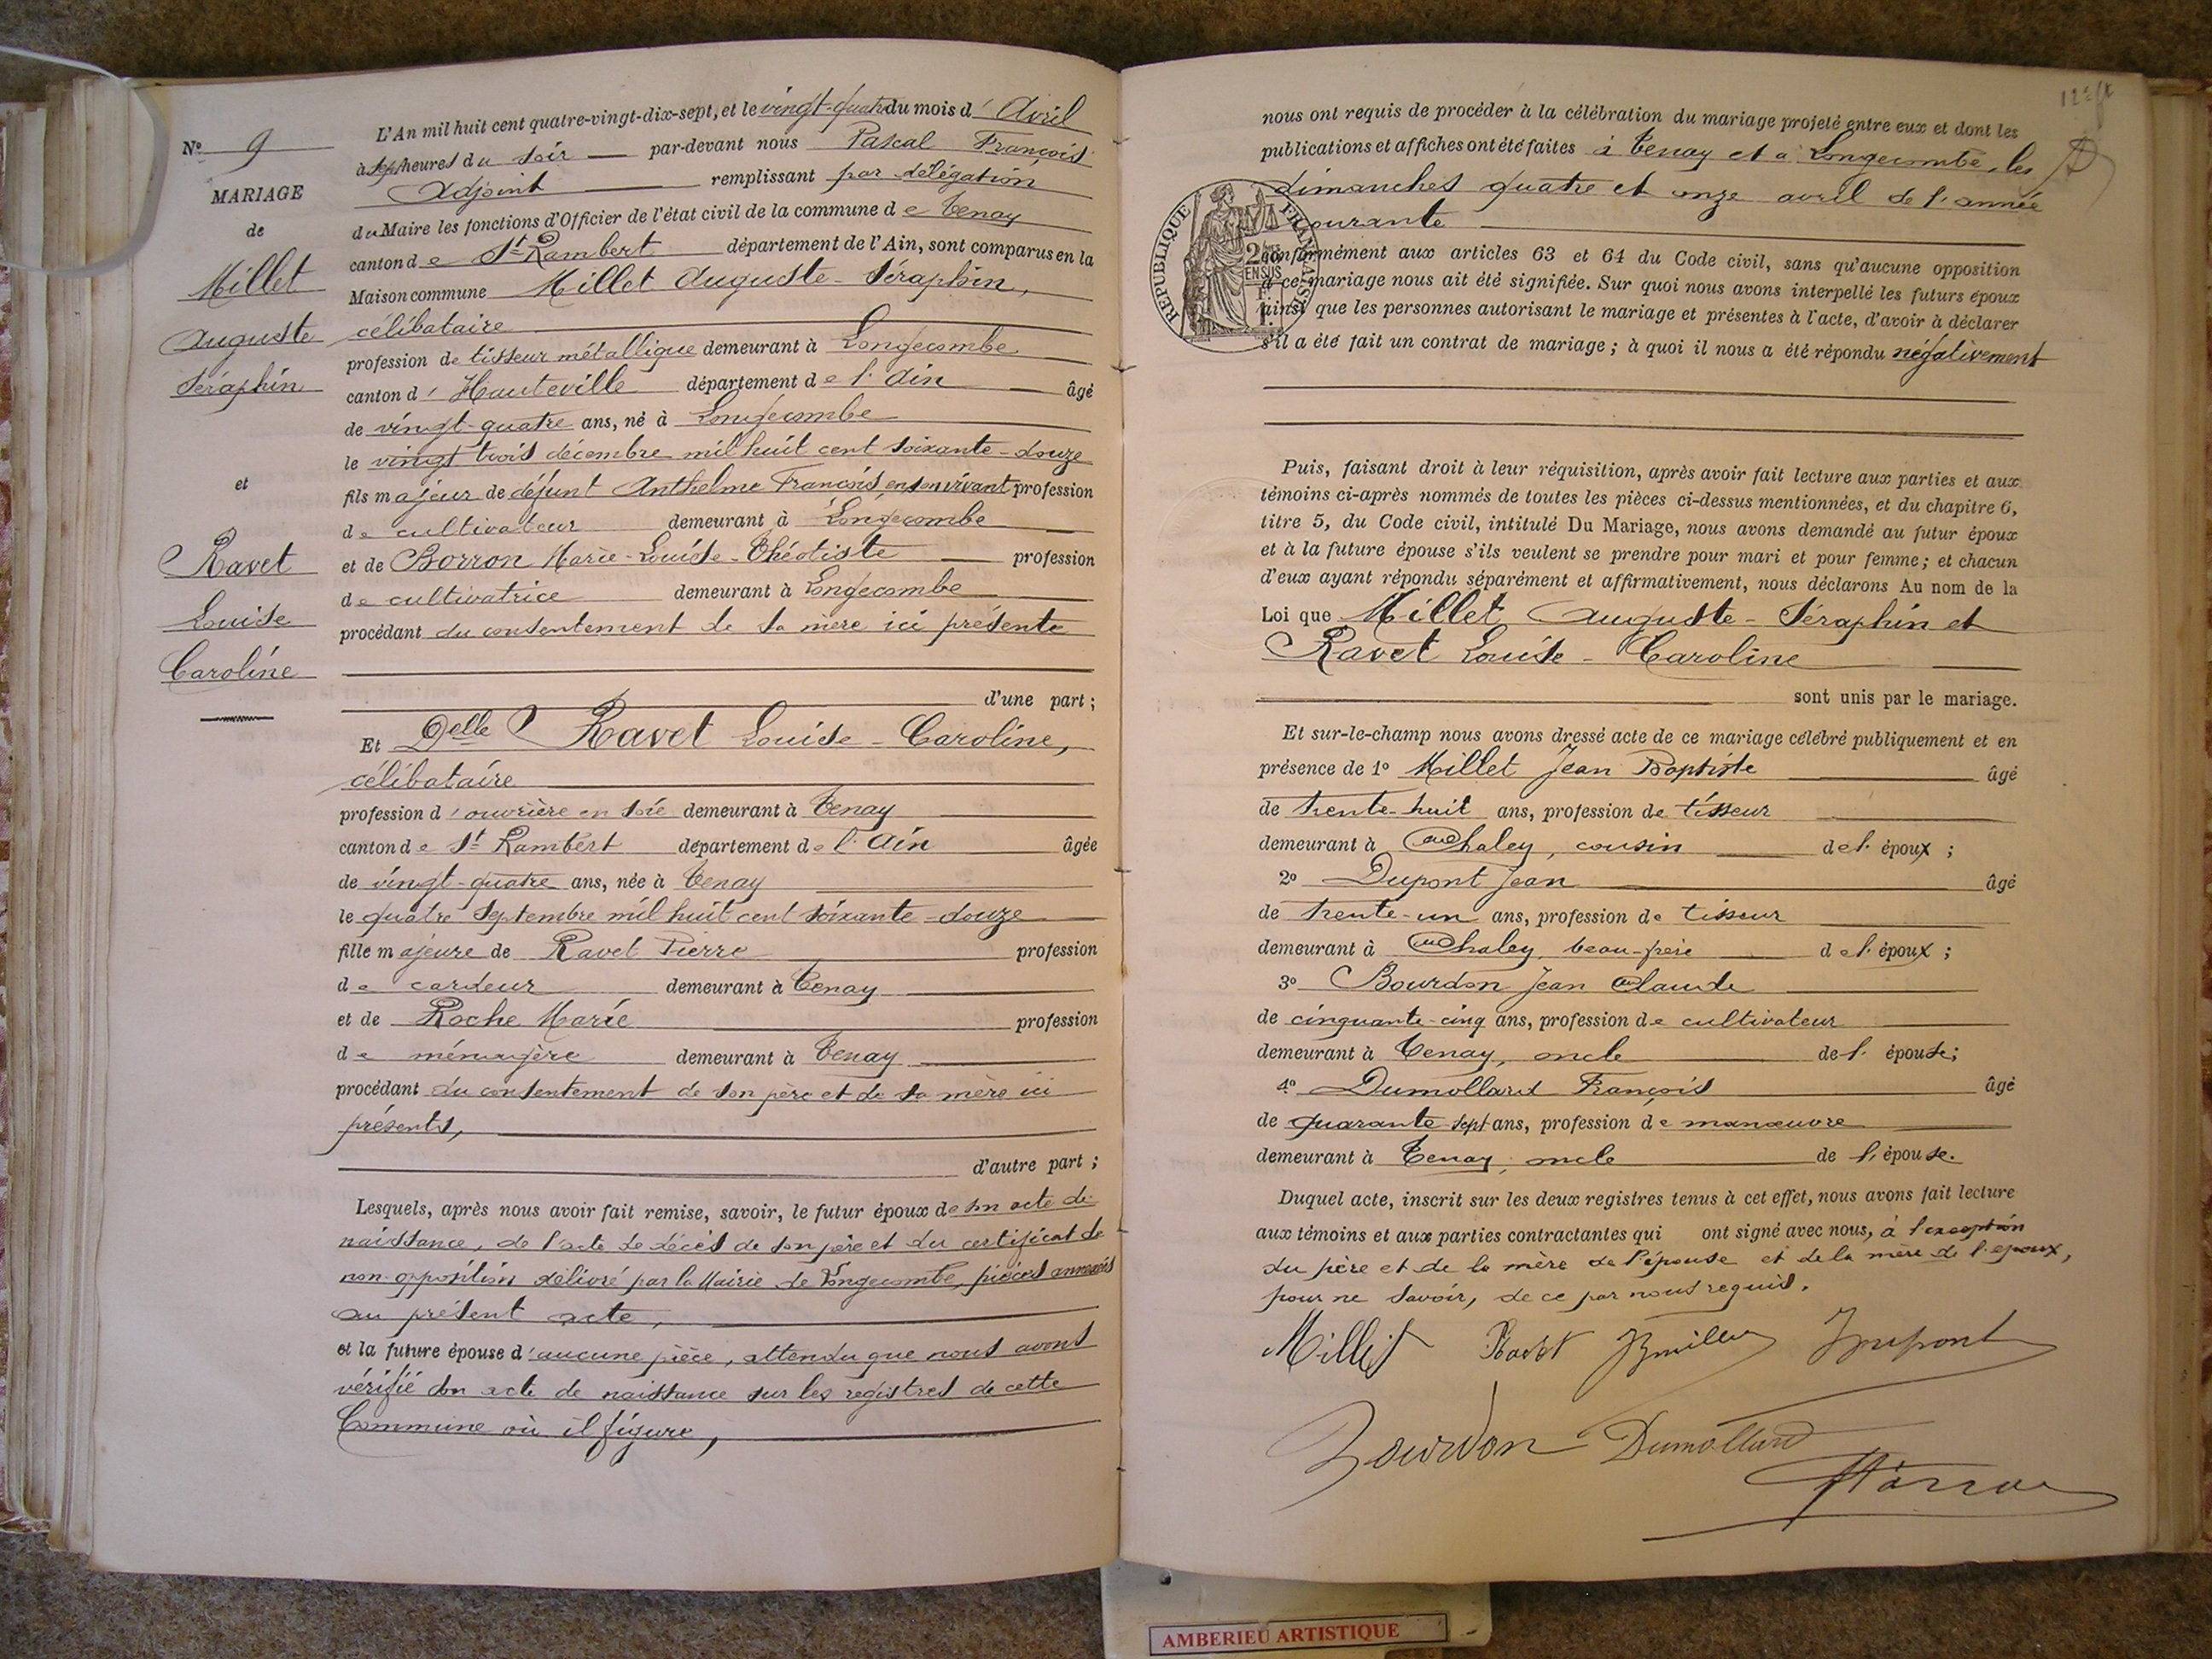 N° 9
MARIAGE
de
Millet
Auguste
Séraphin
et
Ravet
Louise
Caroline
L'An mil huit cent quatre-vingt-dix-sept, et le vingt-quatre du mois d'Avril
à sept heures du soir par-devant nous Pascal François
Adjoint remplissant par délégation
du Maire les fonctions d'Officier de l'état civil de la commune de Tenay
canton de St Rambert département de l'Ain, sont comparus en la
Maison commune Millet Auguste-Séraphin,
célibataire
profession de tisseur métallique demeurant à Longecombe
canton d'Hauteville département de l'Ain âgé
de vingt-quatre ans, né à Longecombe
le vingt trois décembre mil huit cent soixante-douze
fils majeur de défunt Anthelme François, en son vivant profession
de cultivateur demeurant à Longecombe
et de Borron Marie-Louise-Théotiste profession
de cultivatrice demeurant à Longecombe
procédant du consentement de sa mère ici présente
d'une part ;
Et Delle Ravet Louise-Caroline,
célibataire
profession d'ouvrière en soie demeurant à Tenay
canton de St Rambert département de l'Ain âgée
de vingt-quatre ans, née à Tenay
le quatre Septembre mil huit cent soixante-douze
fille majeure de Ravet Pierre profession
de cardeur demeurant à Tenay
et de Roche Marie profession
de ménagère demeurant à Tenay
procédant du consentement de son père et de sa mère ici
présents,
d'autre part ;
Lesquels, après nous avoir fait remise, savoir, le futur époux de son acte de
naissance, de l'acte de décès de son père et du certificat de
non-opposition délivré par la Mairie de Longecombe, pièces annexées
au présent acte,
et la future épouse d'aucune pièce, attendu que nous avons
vérifié son acte de naissance sur les registres de cette
Commune où il figure,
nous ont requis de procéder à la célébration du mariage projeté entre eux et dont les
publications et affiches ont été faites à Tenay et à Longecombe, les
dimanches quatre et onze avril de l'année
courante
RÉPUBLIQUE FRANÇAISE
conformément aux articles 63 et 64 du Code civil, sans qu'aucune opposition
à ce mariage nous ait été signifiée. Sur quoi nous avons interpellé les futurs époux
ainsi que les personnes autorisant le mariage et présentes à l'acte, d'avoir à déclarer
s'il a été fait un contrat de mariage ; à quoi il nous a été répondu négativement
Puis, faisant droit à leur réquisition, après avoir fait lecture aux parties et aux
témoins ci-après nommés de toutes les pièces ci-dessus mentionnées, et du chapitre 6,
titre 5, du Code civil, intitulé Du Mariage, nous avons demandé au futur époux
et à la future épouse s'ils veulent se prendre pour mari et pour femme ; et chacun
d'eux ayant répondu séparément et affirmativement, nous déclarons Au nom de la
Loi que Millet Auguste-Séraphin et
Ravet Louise-Caroline
sont unis par le mariage.
Et sur-le-champ nous avons dressé acte de ce mariage célébré publiquement et en
présence de 1° Millet Jean Baptiste âgé
de trente-huit ans, profession de tisseur
demeurant à Chaley, cousin de l'époux ;
2° Dupont Jean âgé
de trente-un ans, profession de tisseur
demeurant à Chaley, beau-frère de l'époux ;
3° Bourdon Jean Claude
de cinquante-cinq ans, profession de cultivateur
demeurant à Tenay, oncle de l'épouse ;
4° Dumollard François âgé
de quarante-sept ans, profession de manœuvre
demeurant à Tenay, oncle de l'épouse.
Duquel acte, inscrit sur les deux registres tenus à cet effet, nous avons fait lecture
aux témoins et aux parties contractantes qui ont signé avec nous, à l'exception
du père et de la mère de l'épouse et de la mère de l'époux,
pour ne savoir, de ce par nous requis.
Millet Ravet Dupont
Bourdon Dumollard
AMBERIEU ARTISTIQUE